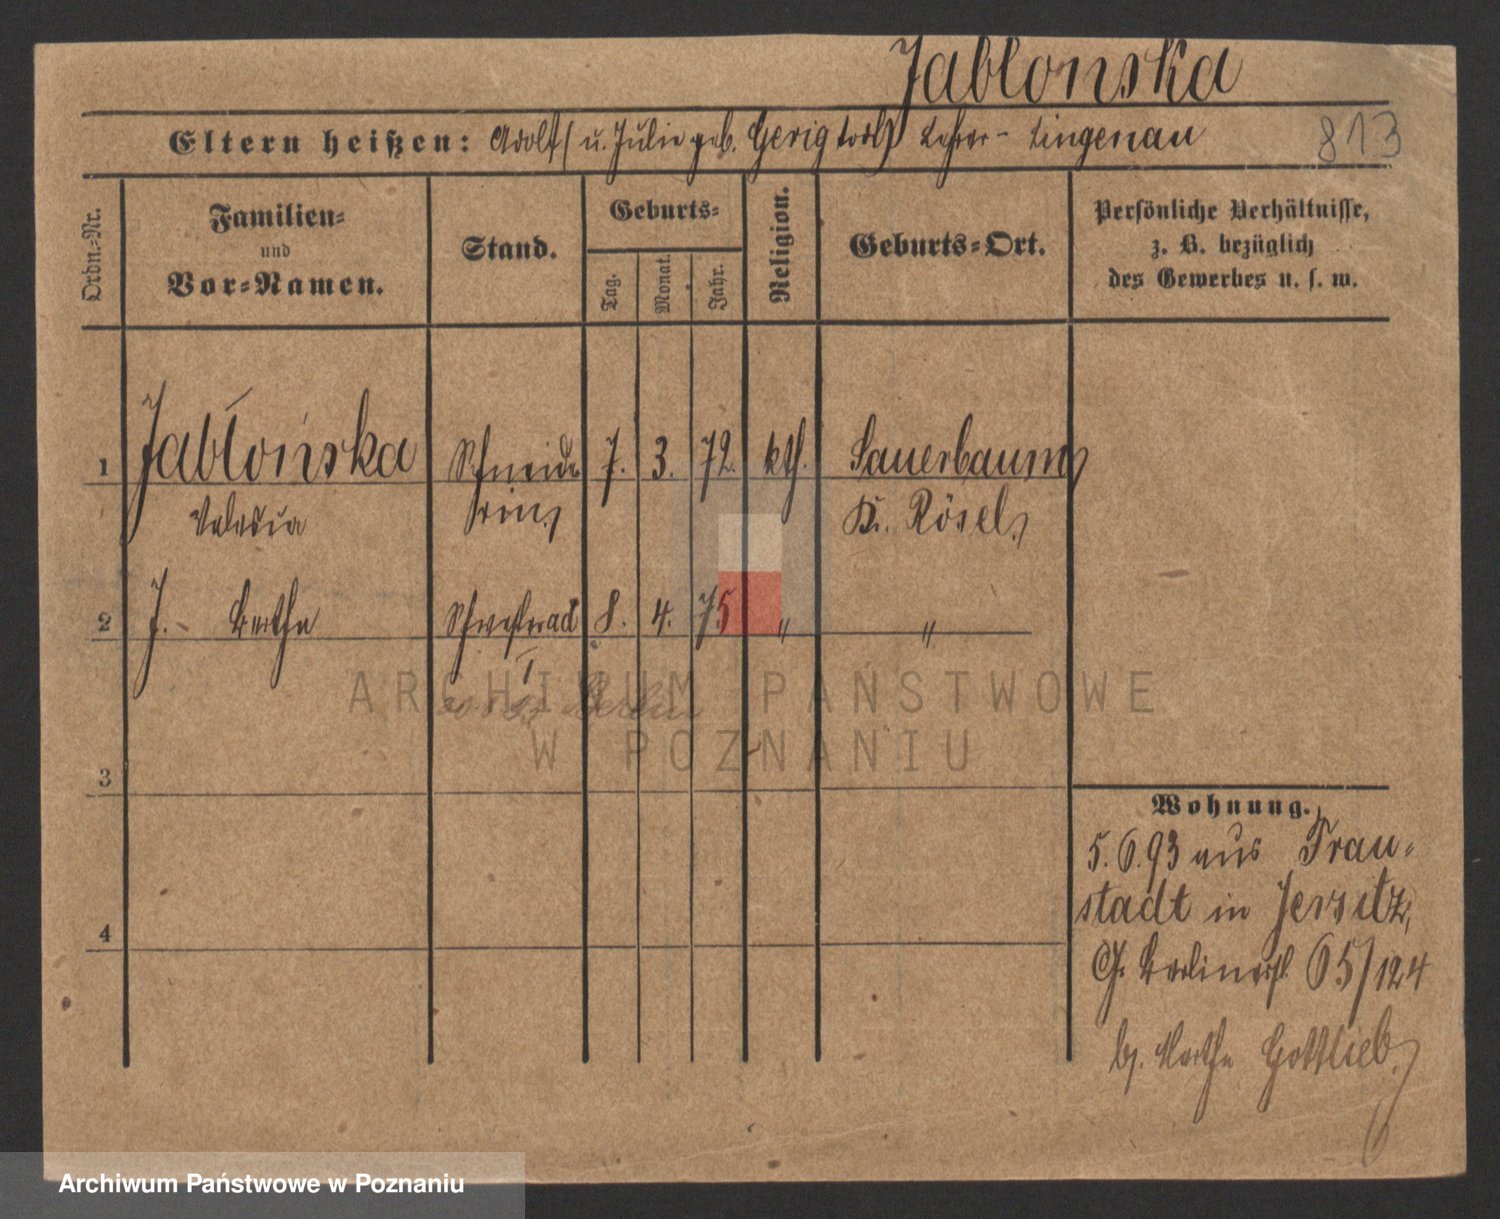 Jablonska
Eltern heißen: Adolf (u. Julie geb. Gerig todt) Lehrer - Lingenau
813
Ordn.-Nr.
Familien-
und
Vor-Namen.
Stand.
Geburts-
Tag.
Monat.
Jahr.
Religion.
Geburts-Ort.
Persönliche Verhältnisse,
z. B. bezüglich
des Gewerbes u. s. w.
1 Jabłońska Schneide 7. 3. 72. kth. Sauerbaum
Valesia rin Kr. Rösel
2 J. Berthe Schwester ad 8. 4. 75 " "
1
Berlin
3
4
Wohnung.
5.6.93 aus Frau-
stadt in Jersitz,
Gr. Berlinerst. 65/124
b. Marthe Gottlieb
ARCHIWUM PAŃSTWOWE
W POZNANIU
Archiwum Państwowe w Poznaniu